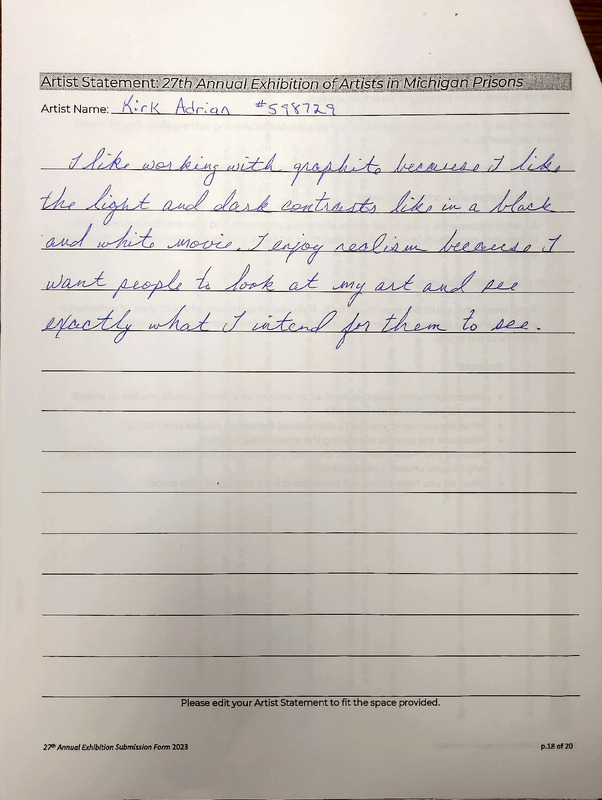 Artist Statement: 27th Annual Exhibition of Artists in Michigan Prisons
Artist Name: Kirk Adrian #598729
I like working with graphite because I like
the light and dark contrasts like in a black
and white movie. I enjoy realism because I
want people to look at my art and see
exactly what I intend for them to see.
Please edit your Artist Statement to fit the space provided.
27th Annual Exhibition Submission Form 2023 p.18 of 20